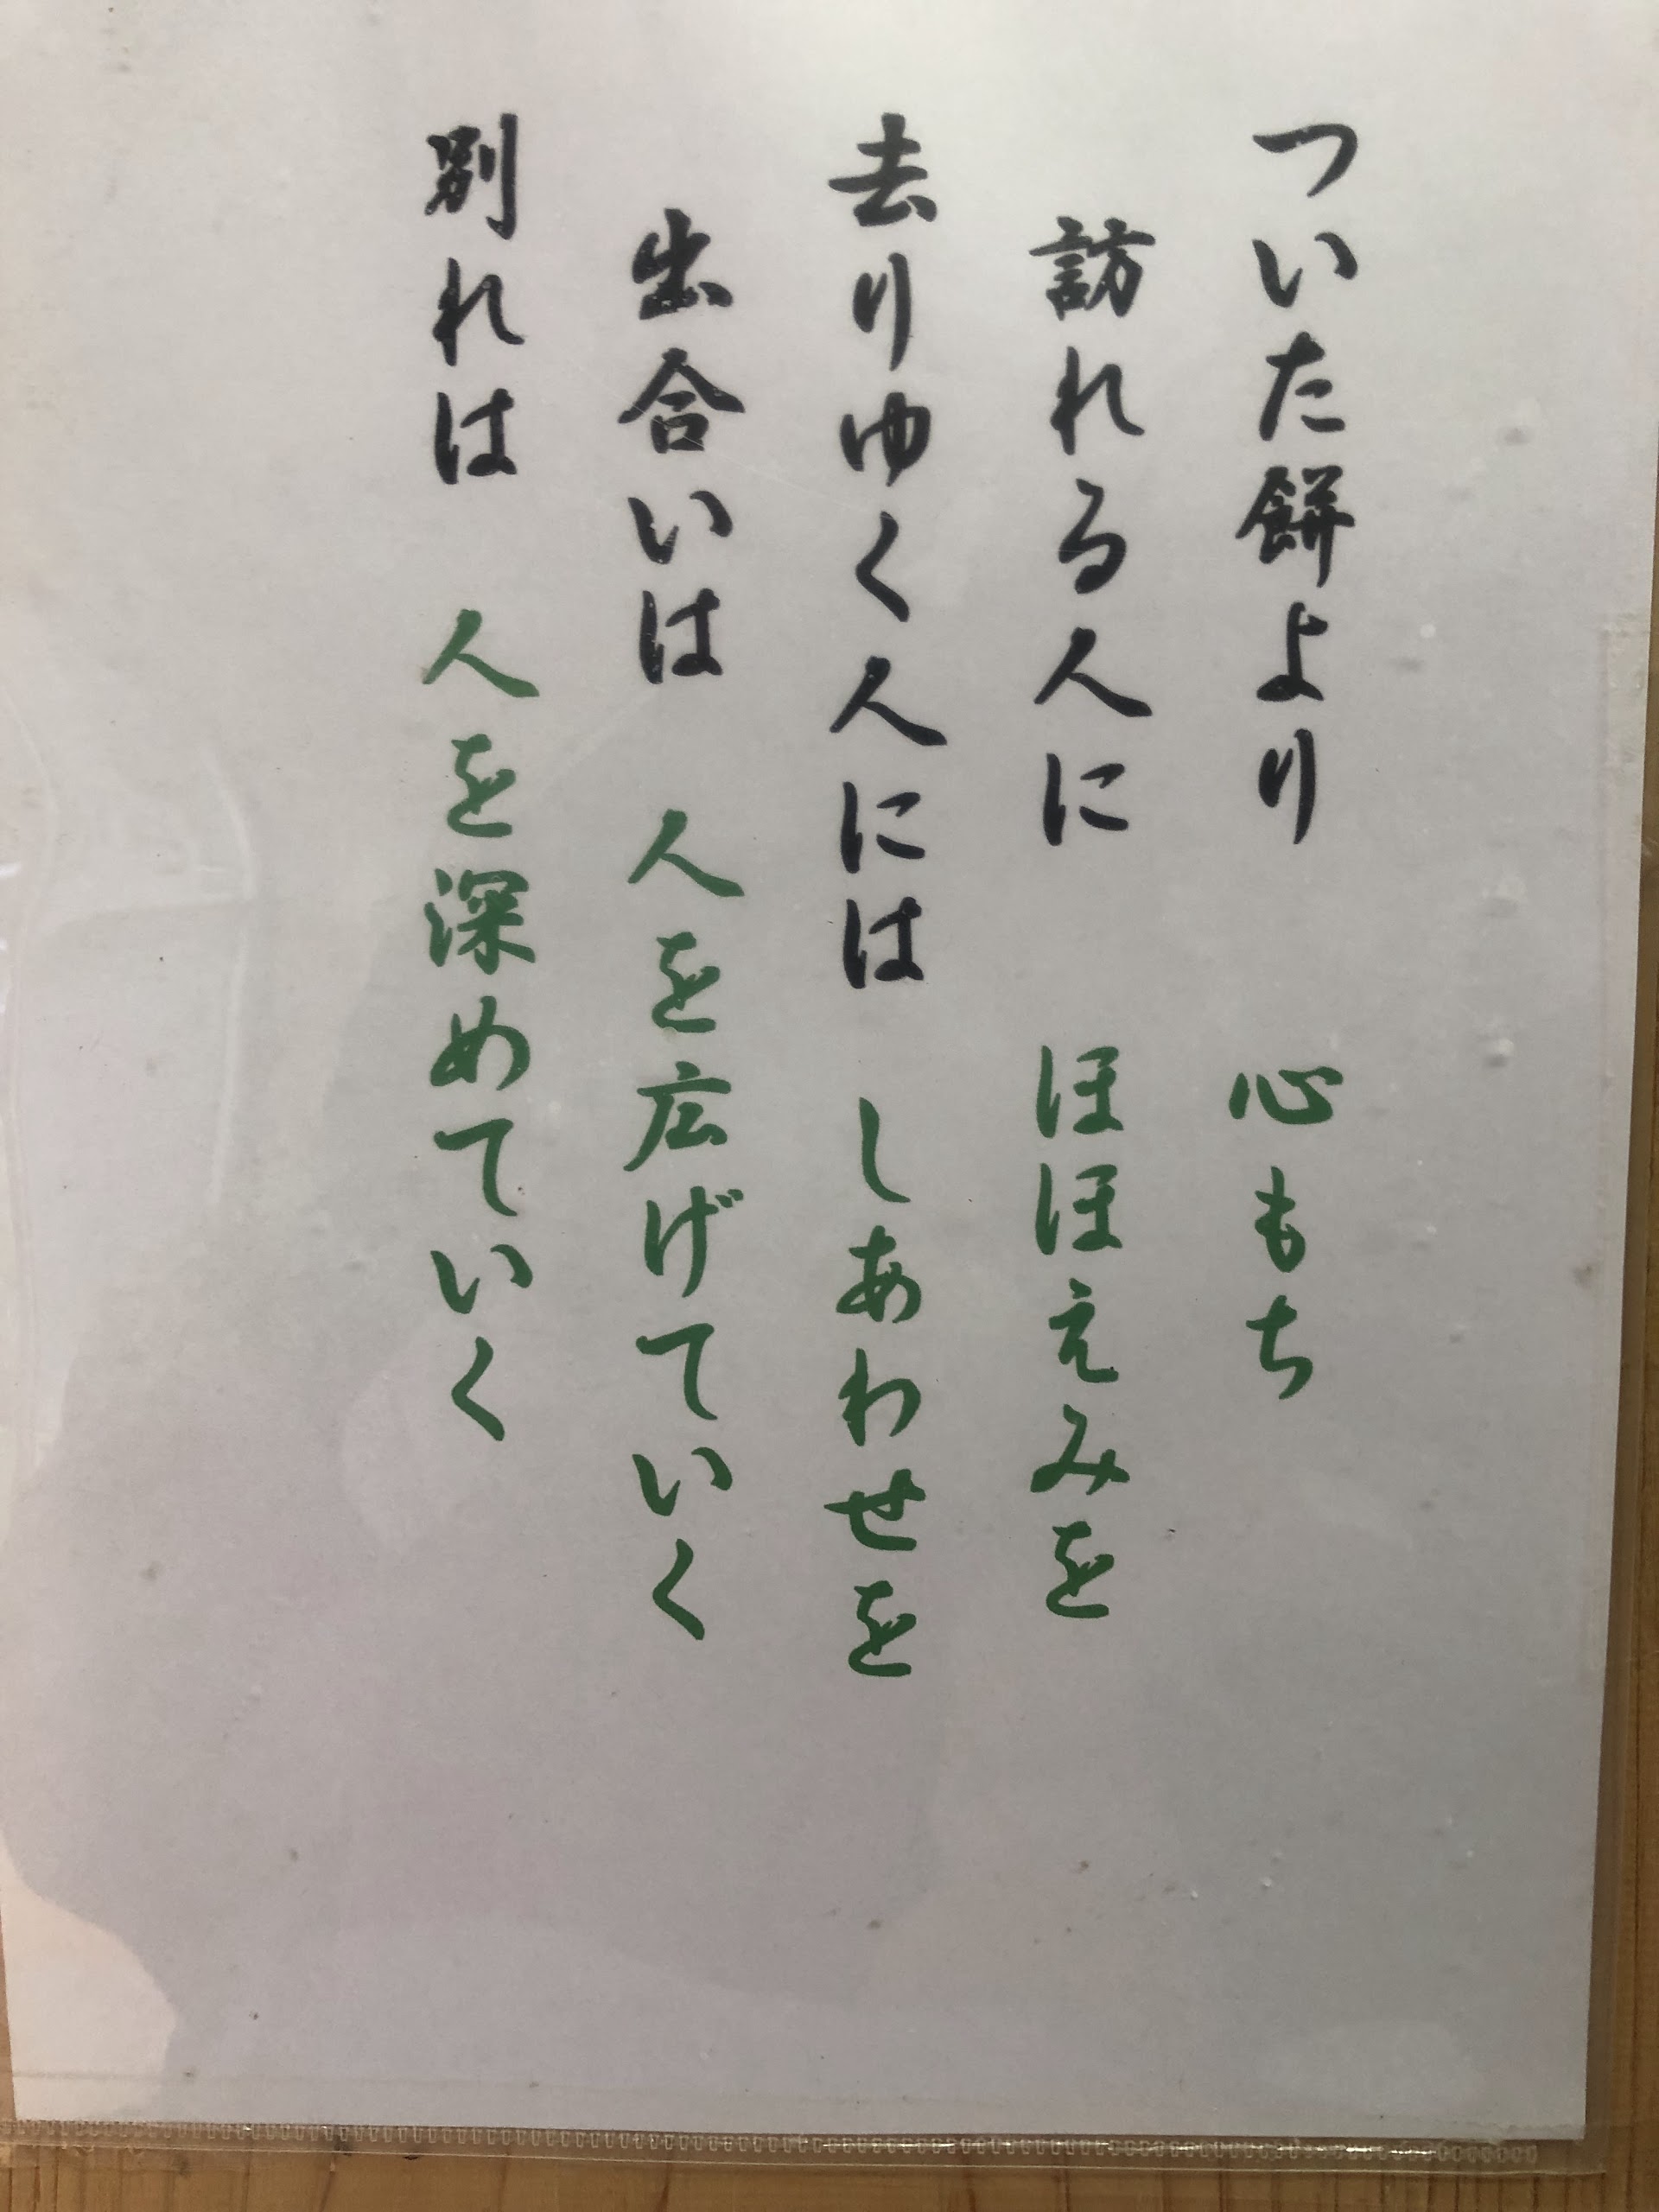 ついた餅より　心もち
訪れる人に　ほほえみを
去りゆく人には　しあわせを
出合いは　人を広げていく
別れは　人を深めていく